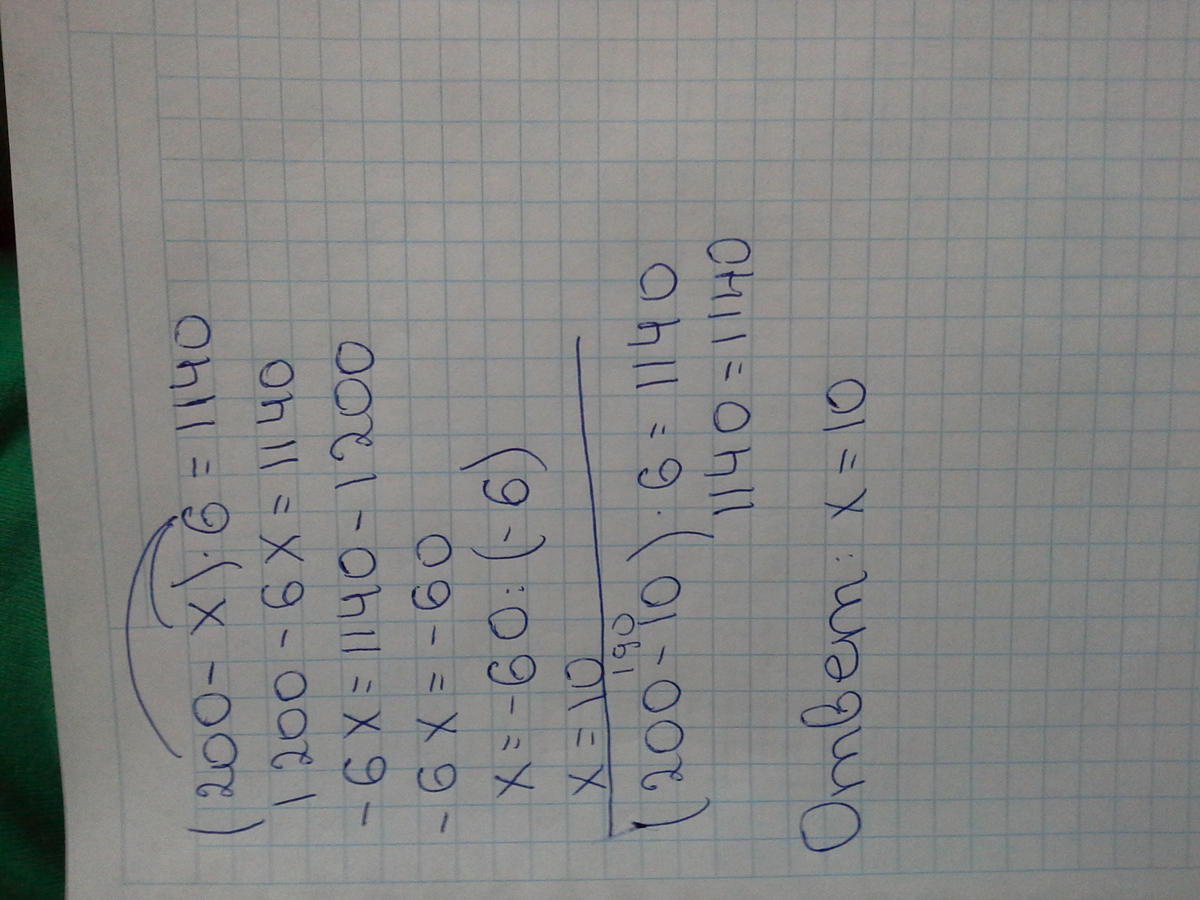 (200 - x) · 6 = 1140
1200 - 6x = 1140
-6x = 1140 - 1200
-6x = -60
x = -60 : (-6)
x = 10
190
(200 - 10) · 6 = 1140
1140 = 1140
Ответ: x = 10